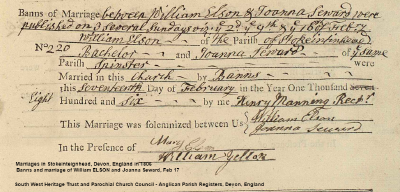 Banns of Marriage between William Elson & Joanna Seward were
published on 3 several Sundays viz ye 2d ye 9th & ye 16th Feb
William Elson of the Parish of Stokeinteinhead
No 220 Bachelor and Joanna Seward of ye same
Parish Spinster were
Married in this Church by Banns
this seventeenth Day of February in the Year One Thousand
Eight Hundred and Six by me Henry Manning Rectr
This Marriage was solemnized between Us William Elson
Joanna Seward
In the Presence of Mary Elson
William
Marriages in Stokeinteignhead, Devon, England in 1806
Banns and marriage of William ELSON and Joanna Seward, Feb 17
South West Heritage Trust and Parochial Church Council - Anglican Parish Registers, Devon, England